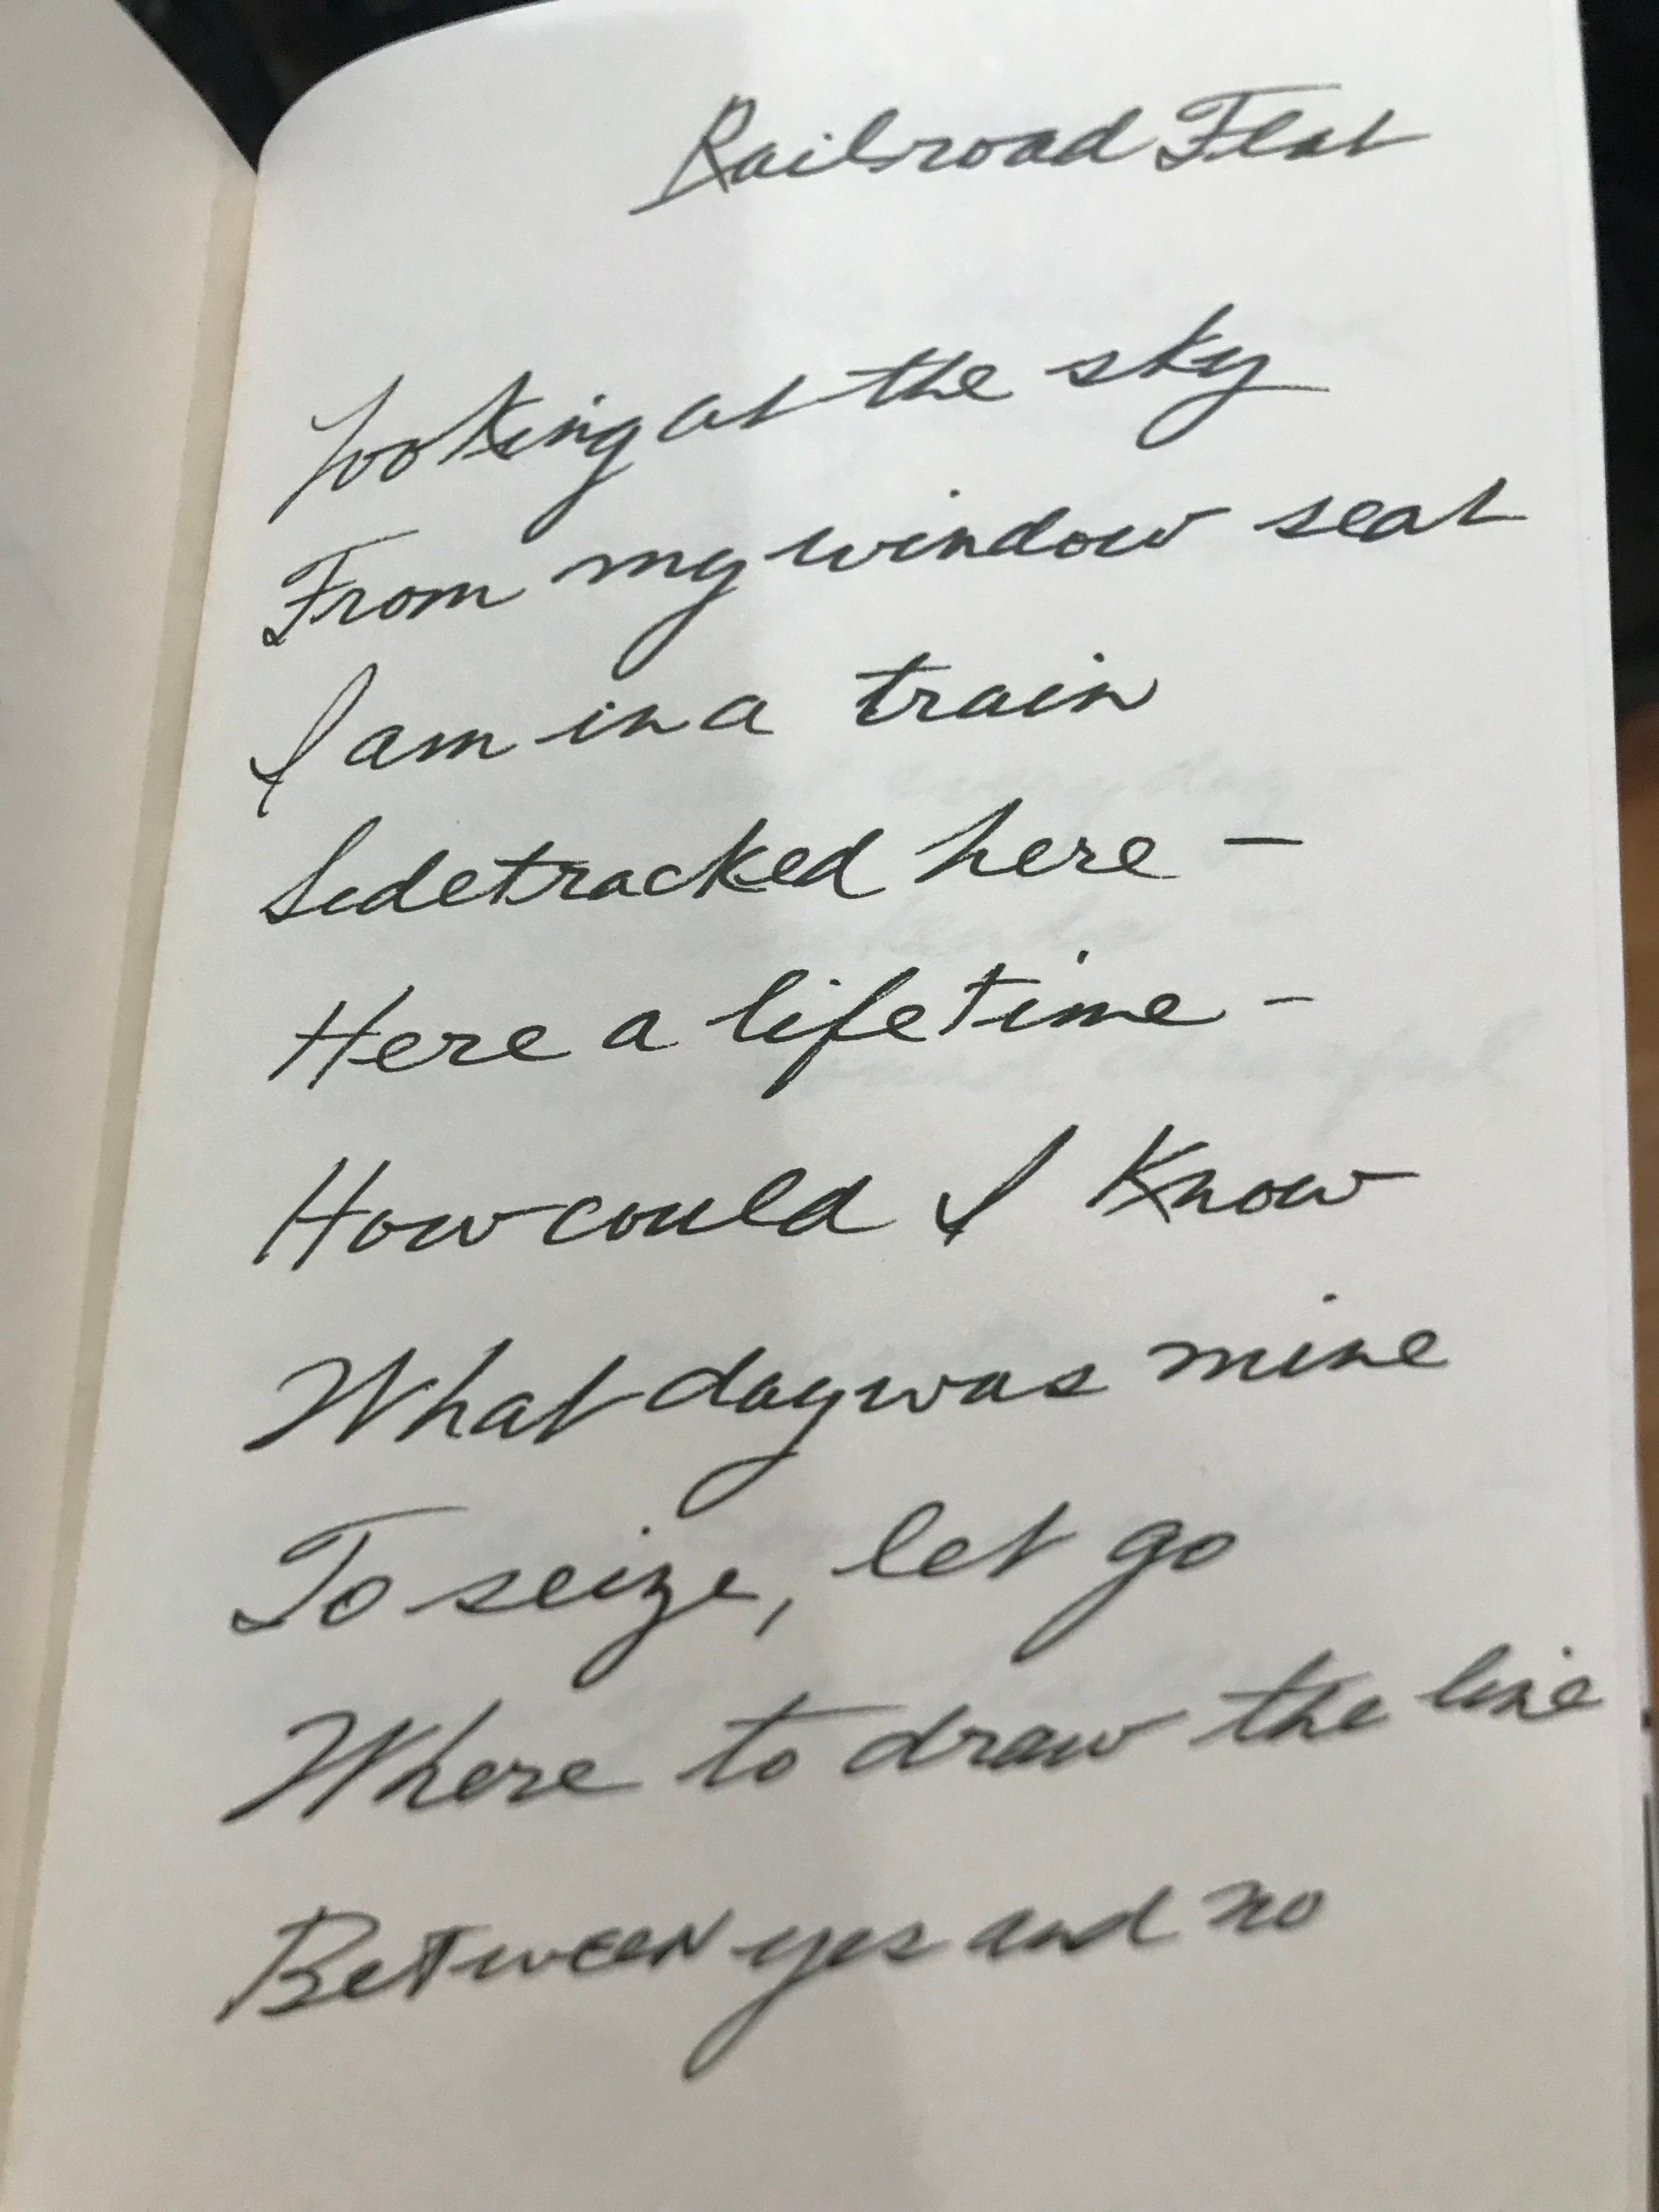 Railroad Flat
Looking at the sky
From my window seat
I am in a train
Sidetracked here –
Here a lifetime –
How could I know
What day was mine
To seize, let go
Where to draw the line
Between yes and no